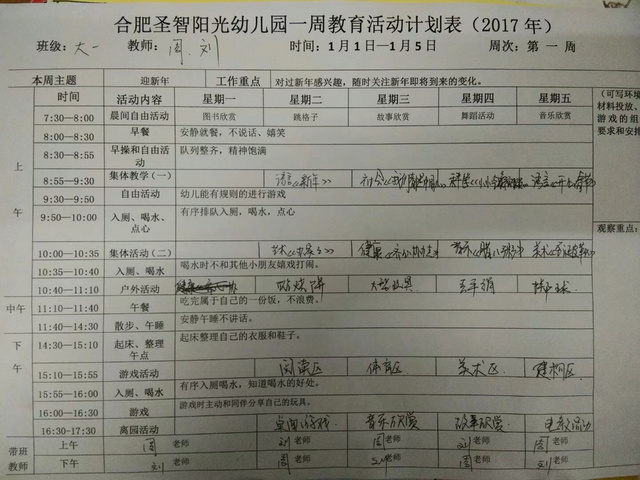 合肥圣智阳光幼儿园一周教育活动计划表（2017 年）
班级：大一 教师：周、刘 时间：1 月 1 日—1 月 5 日 周次：第 一 周
本周主题 迎新年 工作重点 对过新年感兴趣，随时关注新年即将到来的变化。
时间 活动内容 星期一 星期二 星期三 星期四 星期五
7:30—8:00 晨间自由活动 图书欣赏 跳格子 故事欣赏 舞蹈活动 音乐欣赏
上午
8:00—8:30 早餐 安静就餐，不说话、嬉笑
8:30—8:55 早操和自由活动 队列整齐，精神饱满
8:55—9:30 集体教学（一） 语言《新年》 社会
9:30—9:50 自由活动 幼儿能有规则的进行游戏
9:50—10:00 入厕、喝水、点心 有序排队入厕，喝水，点心
10:00—10:35 集体活动（二） 健康 音乐 美术
10:35—10:40 入厕、喝水 喝水时不和其他小朋友嬉戏打闹。
10:40—11:10 户外活动 大型玩具 拍球
中午
11:10—11:40 午餐 吃完属于自己的一份饭，不浪费。
11:40—14:30 散步、午睡 安静午睡不讲话。
下午
14:30—15:10 起床、整理午点 起床整理自己的衣服和鞋子。
15:10—15:55 游戏活动 阅读区 体育区 美术区 建构区
15:55—16:00 入厕、喝水 有序入厕喝水，知道喝水的好处。
16:00—16:30 游戏 游戏时主动和同伴分享自己的玩具。
16:30-17:30 离园活动 桌面游戏 音乐欣赏 故事欣赏
带班教师 上午 周老师 刘老师 周老师 刘老师 周老师
下午 刘老师 周老师 刘老师 周老师 刘老师
（可写环境
材料投放、
游戏的组
要求和安排
观察重点：